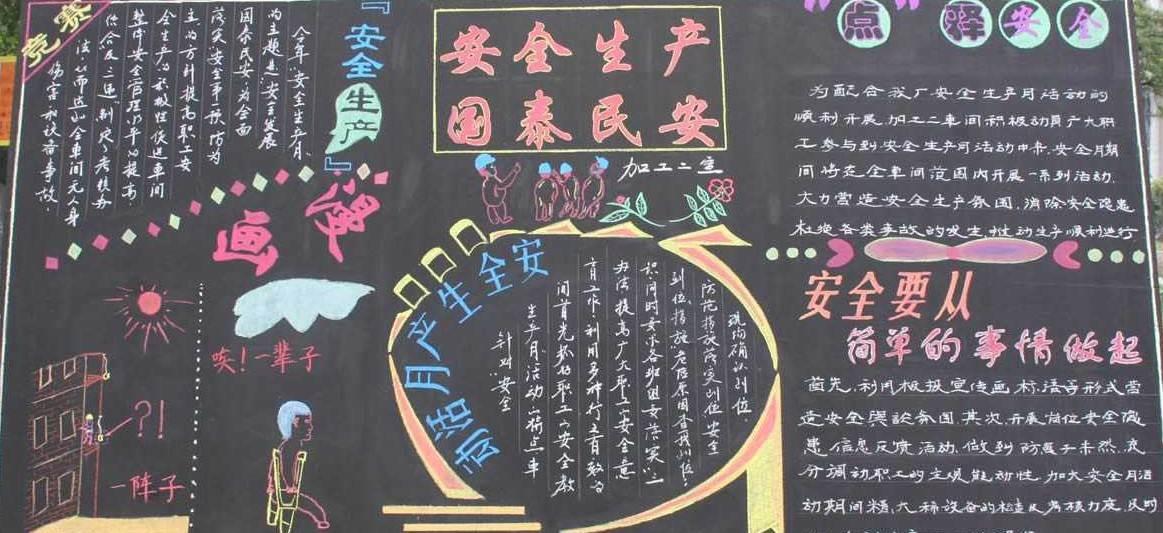 竞赛
『安全生产』
今年“安全生产月”
为主题是“安全发展
国泰民安”为全面
落实“安全第一预防为
主”的方针提高职工安
全生产的积极性促进车间
整体安全管理水平的提高
法，从而达到全车间无人身
伤害和设备事故.
漫画
唉！一辈子
?!
一阵子
安全生产
国泰民安
加工二车
安全生产月活动
针对“安全
生产月”活动宣传点车
间首先抓好职工的安全教
育工作.利用多种行之有效的
办法提高广大职工安全意
识.同时要求各班组要落实“三
到位”措施危险原因查找到位.
防范措施落实到位安全
现场确认到位.
“点”择安全
为配合我厂安全生产月活动的
顺利开展.加工二车间积极动员广大职
工参与到安全生产月活动中来.安全月期
间将在全车间范围内开展一系列活动.
大力营造安全生产氛围，消除安全隐患
杜绝各类事故的发生.推动生产顺利进行
安全要从
简单的事情做起
首先.利用板报宣传画.标语等形式营
造安全舆论氛围.其次.开展岗位安全隐
患.信息反馈活动.做到防患于未然.充
分调动职工的主观能动性.加大安全月活
动期间精.大稀设备的检查及考核力度.及时